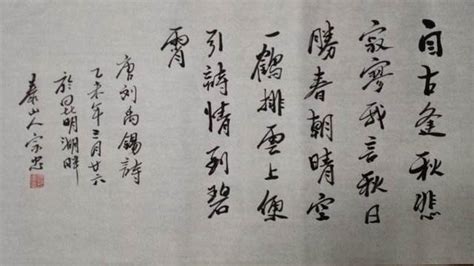 自古逢秋悲
寂寥我言秋日
勝春朝晴空
一鶴排雲上便
引詩情到碧
霄
唐刘禹锡詩
乙未年三月廿六
於昆明湖畔
泰山人宗忠